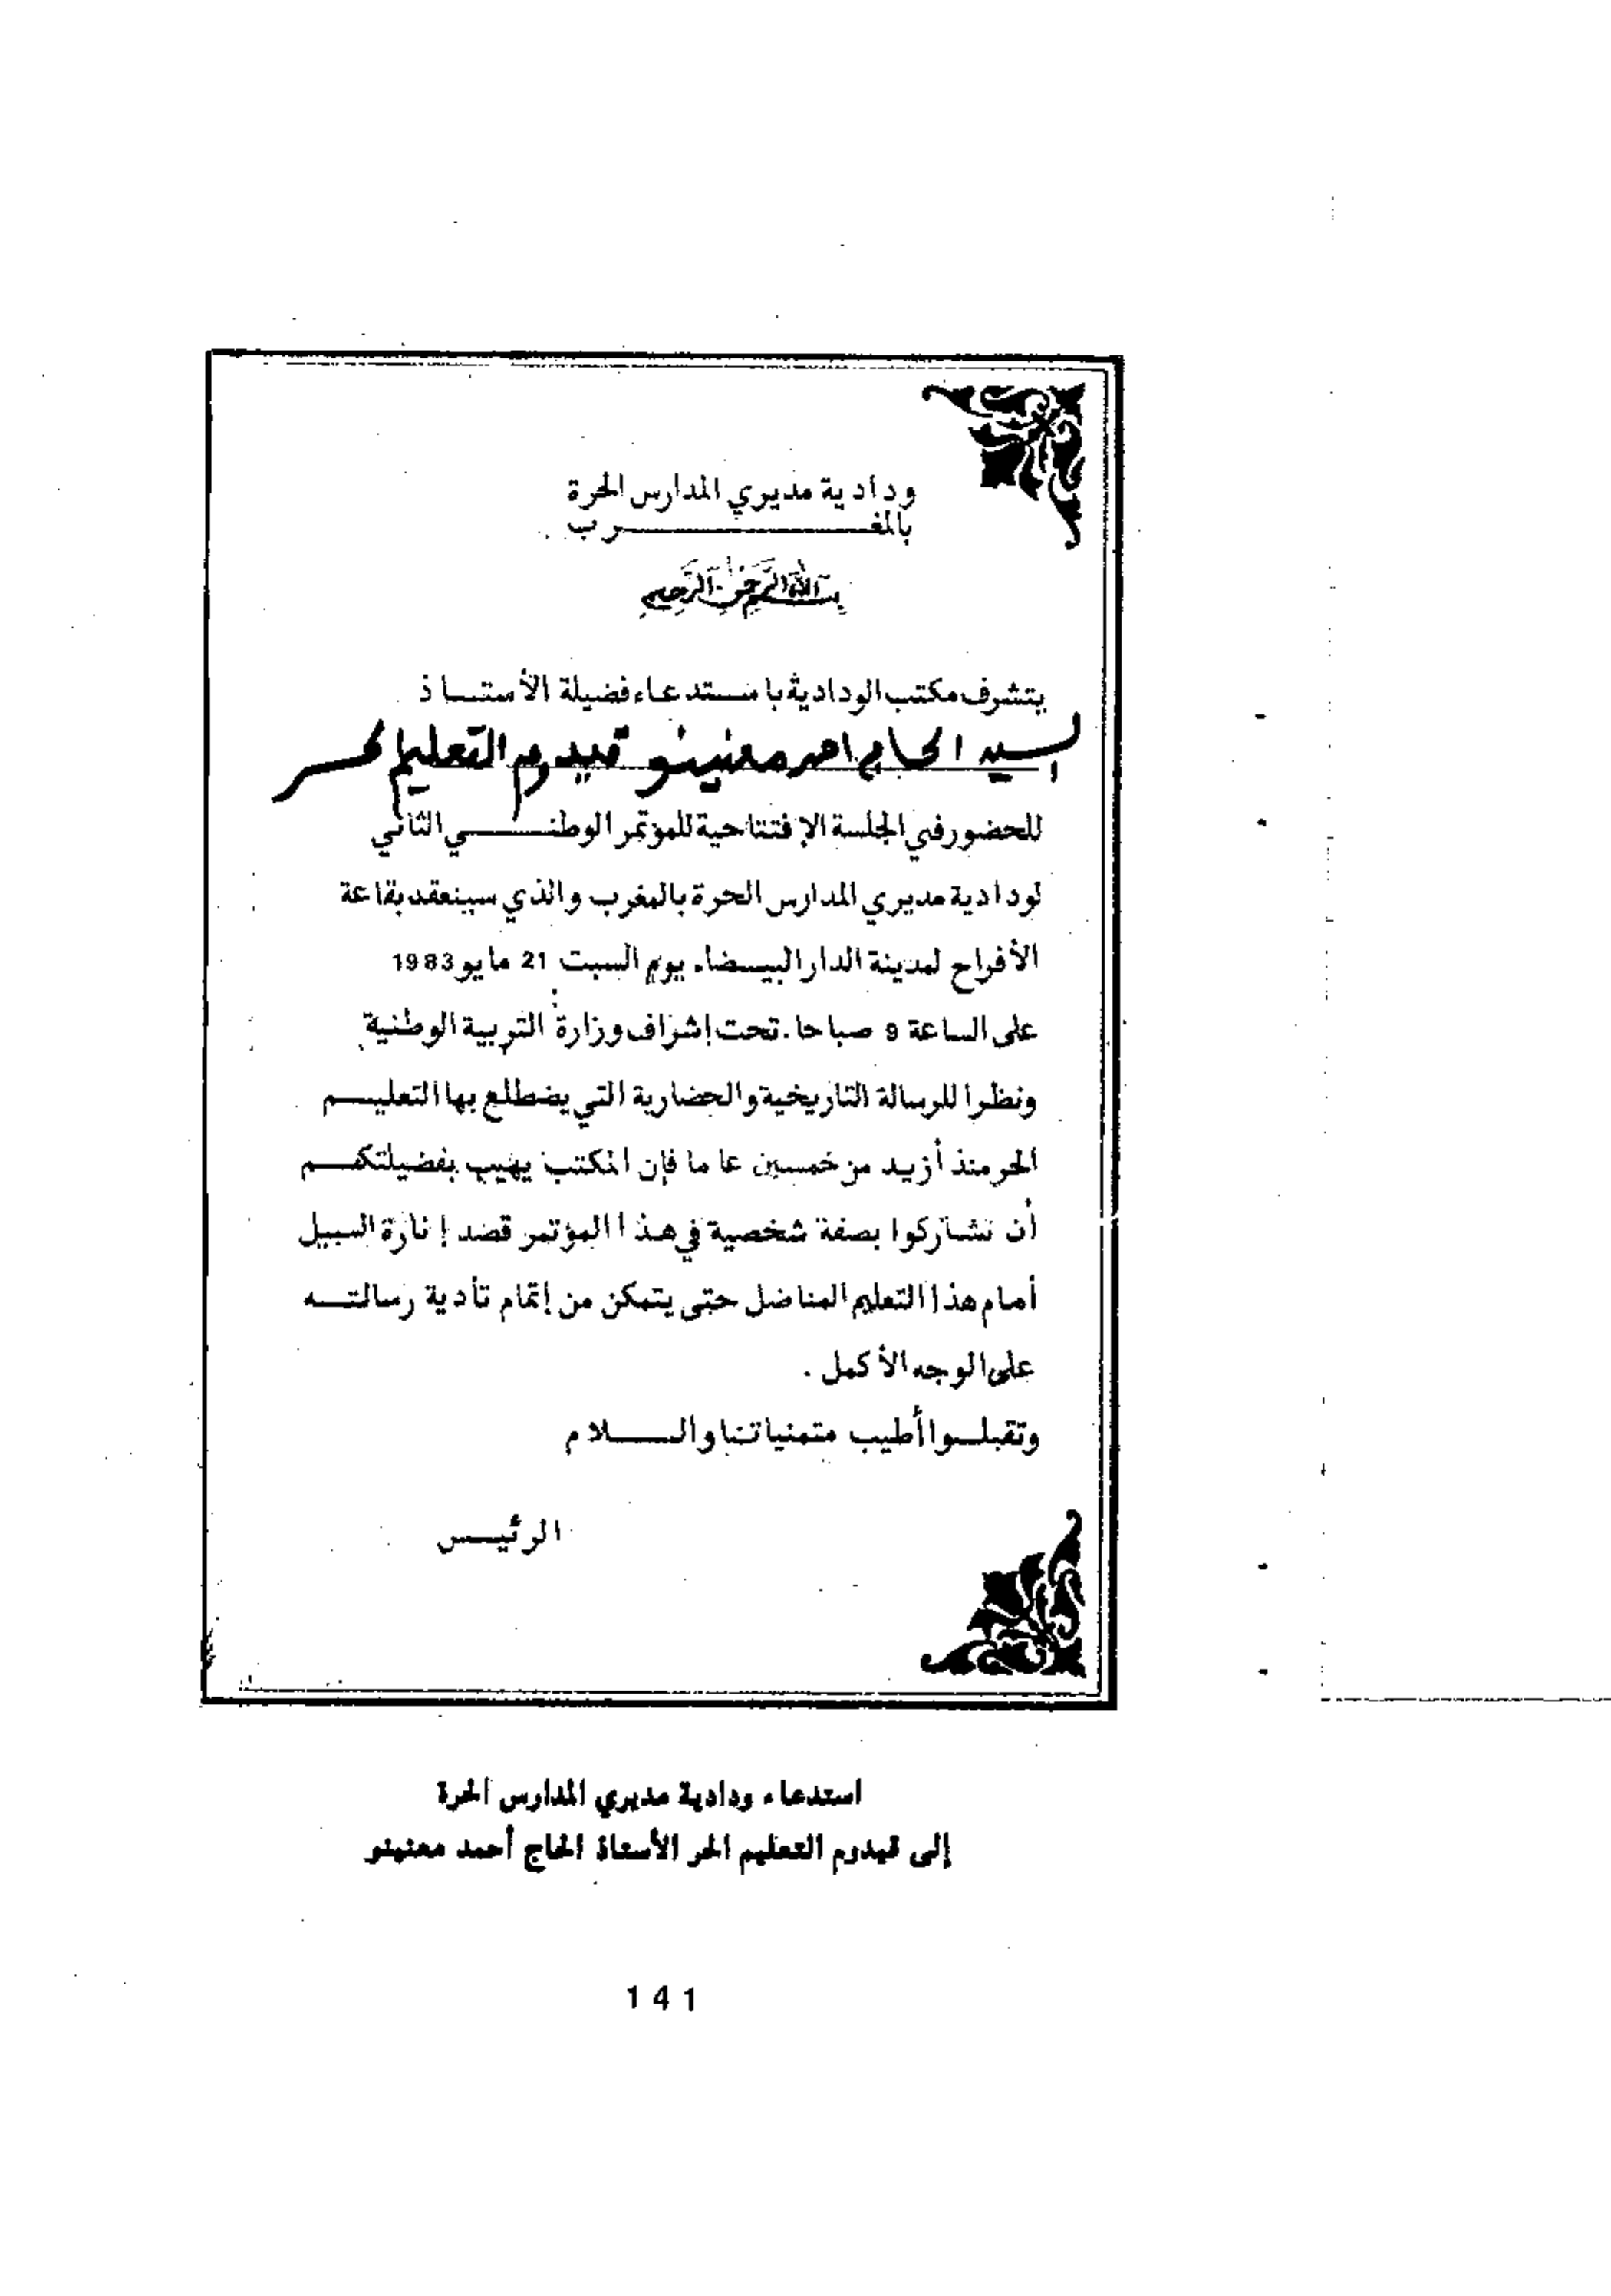 ودادية مديري المدارس الحرة
بالمغرب
بسم الله الرحمن الرحيم
يتشرف مكتب الودادية باستدعاء فضيلة الأستاذ
السيد الحاج احمد معنينو قيدوم التعليم الحر
للحضور في الجلسة الإفتتاحية للمؤتمر الوطني الثاني
لودادية مديري المدارس الحرة بالمغرب والذي سينعقد بقاعة
الأفراح لمدينة الدار البيضاء يوم السبت 21 مايو 1983
على الساعة 9 صباحا. تحت إشراف وزارة التربية الوطنية
ونظرا للرسالة التاريخية والحضارية التي يضطلع بها التعليم
الحر منذ أزيد من خمسين عاما فإن المكتب يهيب بفضيلتكم
أن تشاركوا بصفة شخصية في هذا المؤتمر قصد إنارة السبيل
أمام هذا التعليم المناضل حتى يتمكن من إتمام تأدية رسالته
على الوجه الأكمل .
وتقبلوا أطيب متمنياتنا والسلام
الرئيس
استدعاء ودادية مديري المدارس الحرة
إلى قيدوم التعليم الحر الأستاذ الحاج أحمد معنينو
141